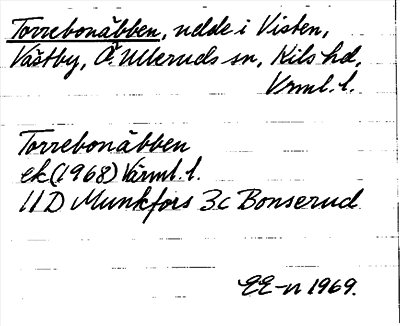 Torrebonäbben, udde i Visten,
Västby, Ö. Ulleruds sn, Kils hd,
Vrml. l.
Torrebonäbben
ek (1968) Värml. l.
11D Munkfors 3c Bonserud
EE-n 1969.